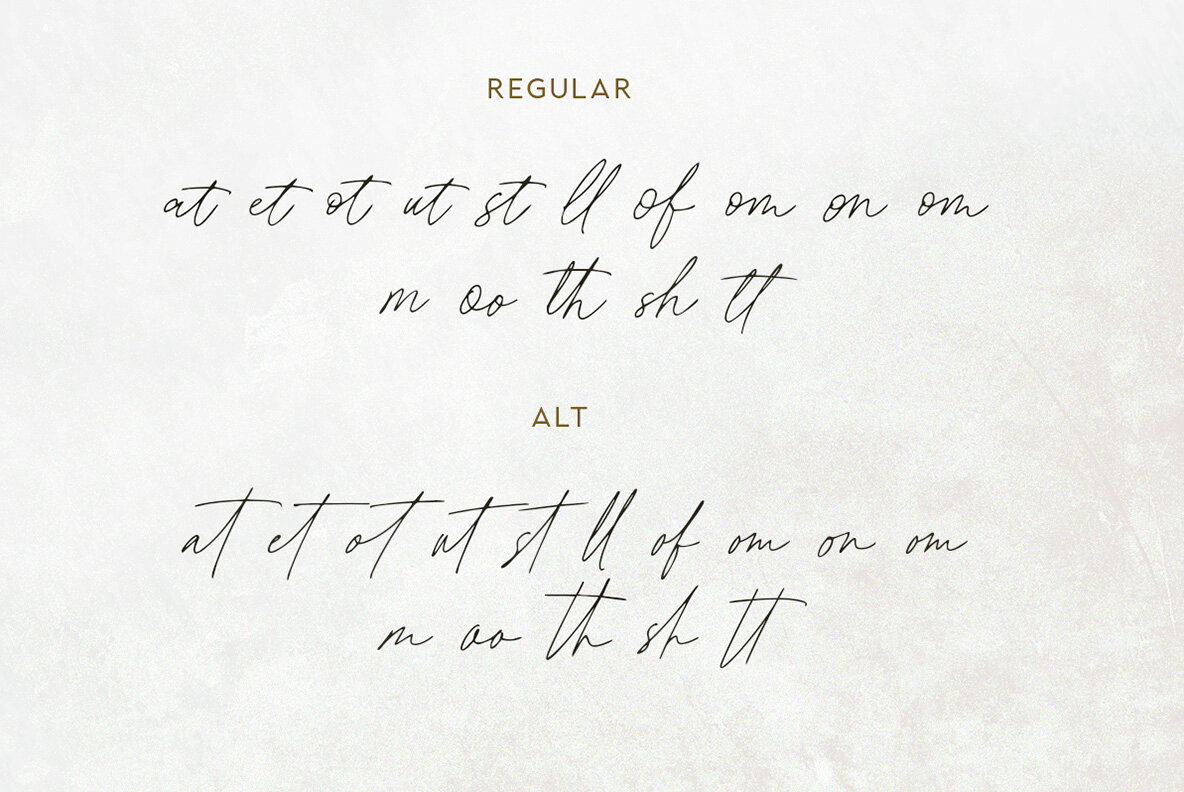 REGULAR
at et ot ut st ll of om on om
m oo th sh tt
ALT
at et ot ut st ll of om on om
m oo th sh tt